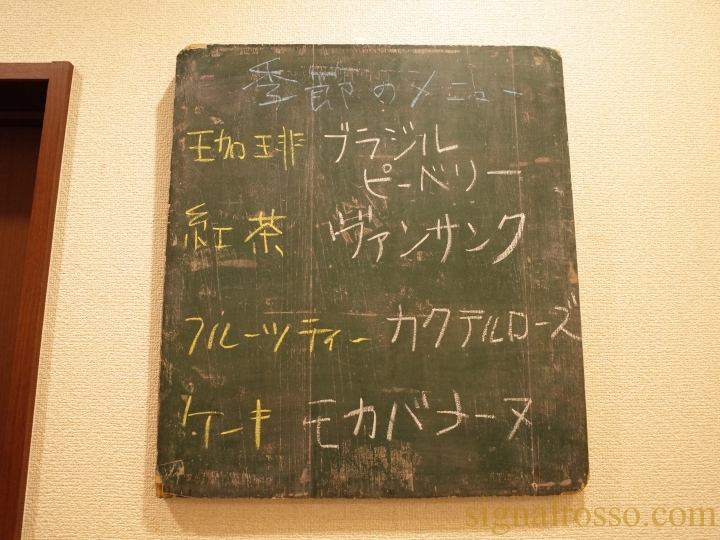 季節のメニュー
珈琲 ブラジル
ピーベリー
紅茶 ヴァンサンク
フルーツティー カクテルローズ
ケーキ モカバナーヌ
signalrosso.com